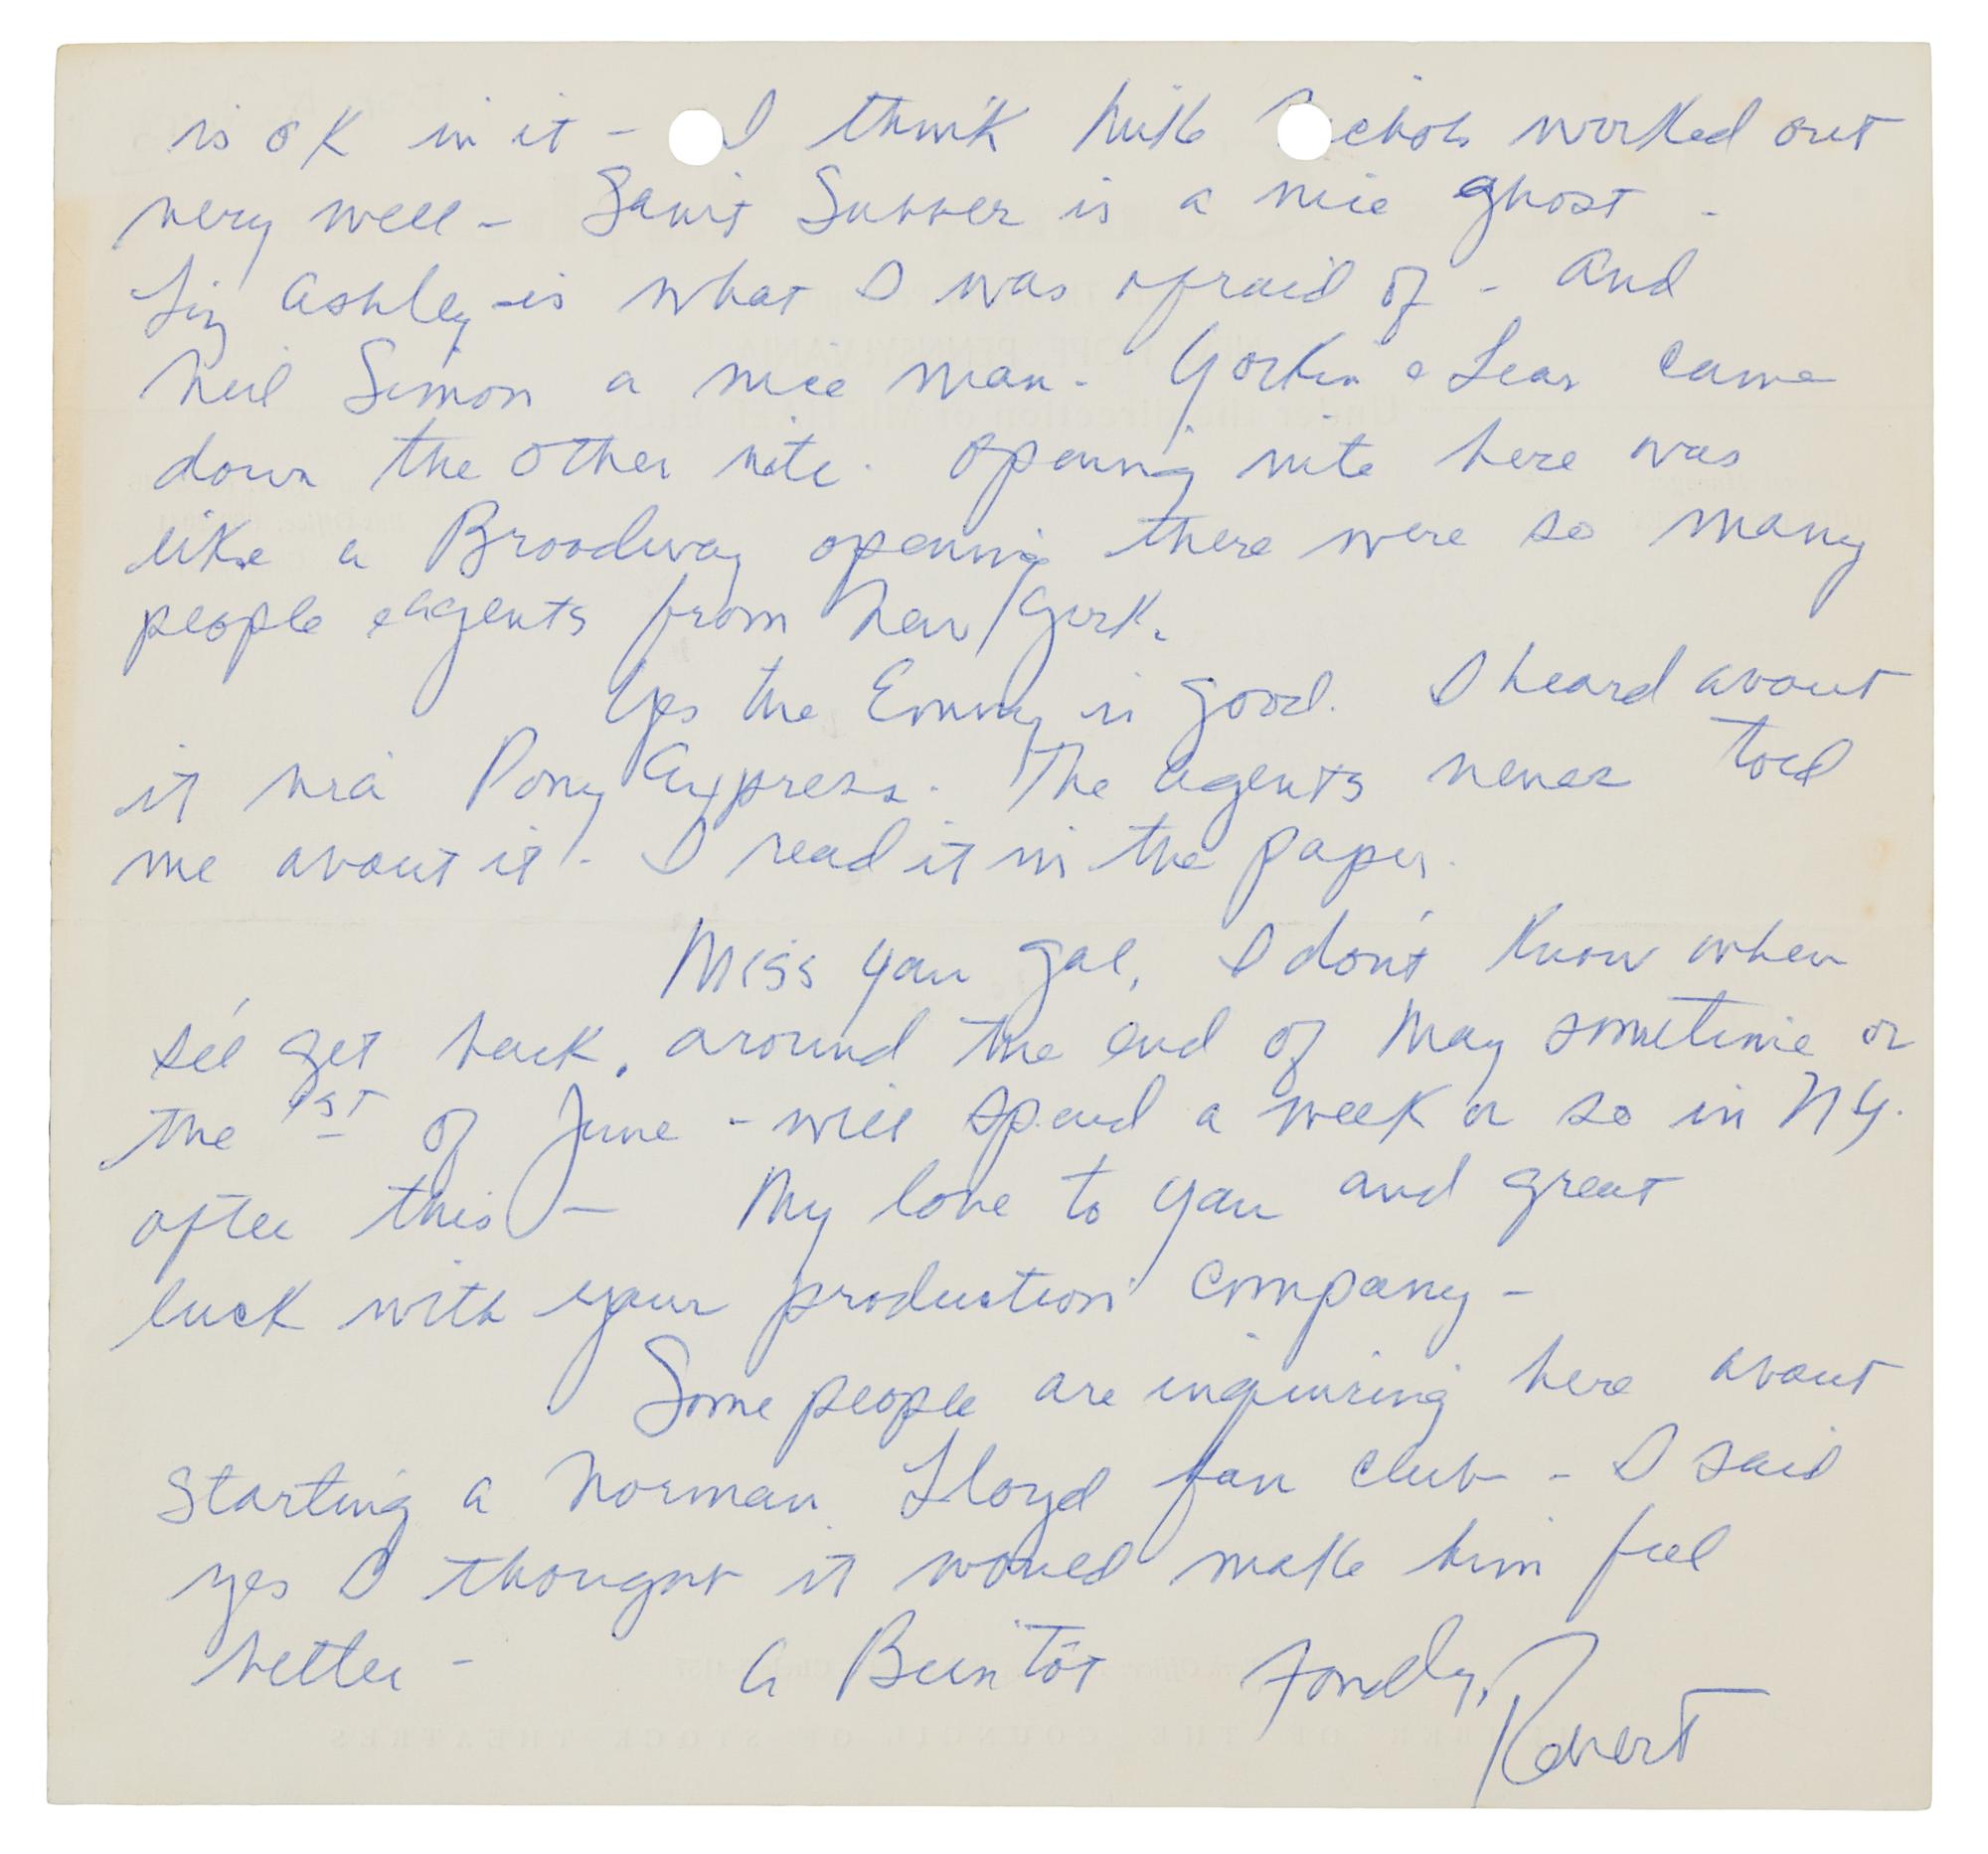 is ok in it - I think Mike Nichols worked out
very well - Saint Subber is a nice ghost -
Liz Ashley is what I was afraid of - and
Neil Simon a nice man. Yorkin & Lear came
down the other nite. Opening nite here was
like a Broadway opening there were so many
people & agents from New York.
Yes the Emmy is good. I heard about
it via Pony Express. The agents never told
me about it. I read it in the paper.
Miss you gal, I don't know when
I'll get back, around the end of May sometime or
the 1st of June - will spend a week or so in NY.
after this - My love to you and great
luck with your production company -
Some people are inquiring here about
starting a Norman Lloyd fan club - I said
yes I thought it would make him feel
better - A Bientôt Fondly,
Robert